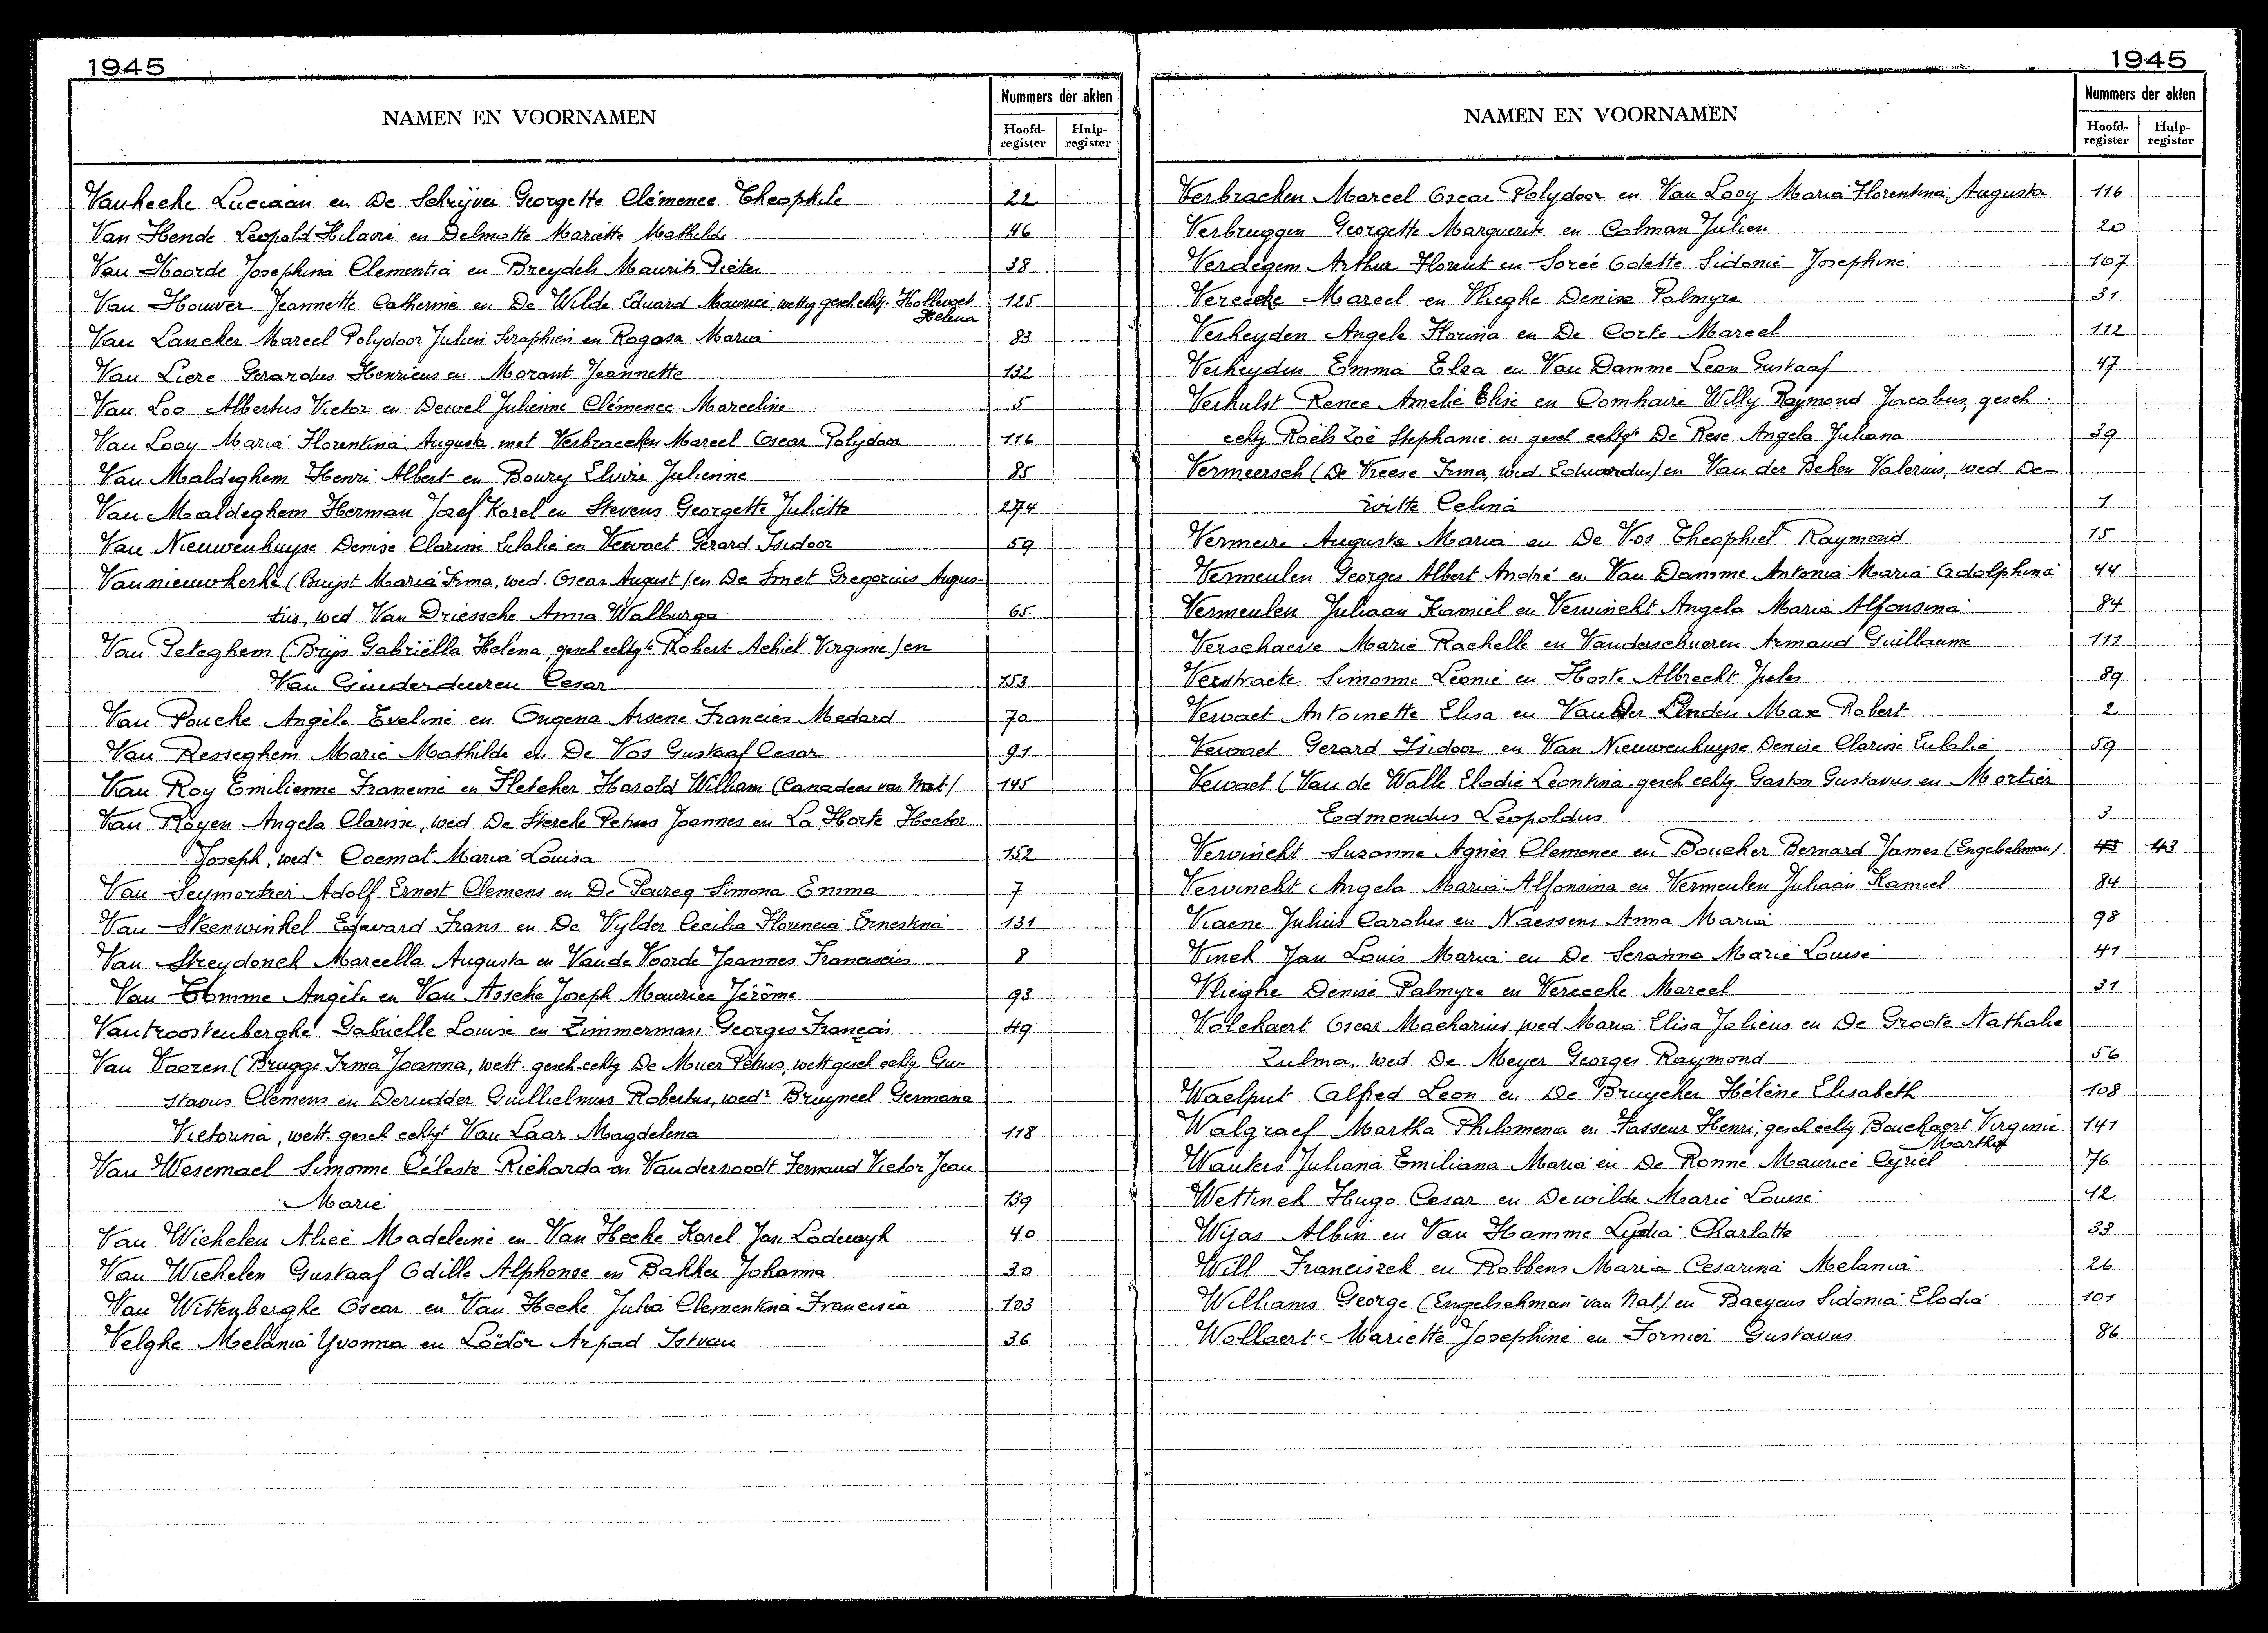 1945
NAMEN EN VOORNAMEN
Nummers der akten
Hoofd-register Hulp-register
Vanhecke Luciaan en De Schrijver Georgette Clémence Theophile 22
Van Hende Leopold Hilaire en Delmotte Mariette Mathilde 46
Van Hoorde Josephina Clementia en Breydels Maurits Pieter 38
Van Houwer Jeannette Catherine en De Wilde Eduard Maurice, wettig gesch echtg. Hollevoet Helena 125
Van Lancker Marcel Polydoor Julien Seraphien en Rogasa Maria 83
Van Liere Gerardus Henricus en Morant Jeannette 132
Van Loo Albertus Victor en Dewel Julienne Clémence Marceline 5
Van Looy Maria Florentina Augusta met Verbraecken Marcel Oscar Polydoor 116
Van Maldeghem Henri Albert en Boury Elvire Julienne 85
Van Maldeghem Herman Jozef Karel en Stevens Georgette Juliette 274
Van Nieuwenhuyse Denise Clarisse Eulalie en Vervaet Gerard Isidoor 59
Vannieuwkerke (Bruyst Maria Irma, wed. Oscar August) en De Smet Gregorius Augus-
tus, wed Van Driessche Anna Walburga 65
Van Peteghem (Buys Gabriëlla Helena, gesch echtgte Robert Achiel Virginie) en
Van Ginderdeuren Cesar 153
Van Poucke Angèle Eveline en Ongena Arsene Francies Medard 70
Van Resseghem Marie Mathilde en De Vos Gustaaf Cesar 91
Van Roy Emilienne Francine en Fletcher Harold William (Canadees van Nat.) 145
Van Royen Angela Clarisse, wed De Stercke Petrus Joannes en La Horte Hector
Joseph, wedr Coemat Maria Louisa 152
Van Seymortier Adolf Ernest Clemens en De Pourcq Simona Emma 7
Van Steenwinkel Edward Frans en De Vylder Cecilia Florencia Ernestina 131
Van Streydonck Marcella Augusta en Van de Voorde Joannes Franciscus 8
Van Tomme Angèle en Van Assche Joseph Maurice Jérôme 93
Vantroostenberghe Gabrielle Louise en Zimmerman Georges François 49
Van Vooren (Brugge Irma Joanna, wett. gesch. echtg De Muer Petrus, wett gesch echtg Gus-
tavus Clemens en Deridder Guillielmus Robertus, wedr Bruyneel Germana
Victorina, wett. gesch echtgt Van Laar Magdelena 118
Van Wesemael Simonne Céleste Richarda en Vandervoodt Fernand Victor Jean
Marie 139
Van Wichelen Alice Madeleine en Van Hecke Karel Jan Lodewyk 40
Van Wichelen Gustaaf Odille Alphonse en Bakker Johanna 30
Van Wittenberghe Oscar en Van Hecke Julia Clementina Francisca 103
Velghe Melania Yvonna en Lödör Arpad Istvan 36
1945
NAMEN EN VOORNAMEN
Nummers der akten
Hoofd-register Hulp-register
Verbracken Marcel Oscar Polydoor en Van Looy Maria Florentina Augusta 116
Verbruggen Georgette Marguerite en Colman Julien 20
Verdegem Arthur Florent en Sorée Odette Sidonie Josephine 107
Verecke Marcel en Vlieghe Denise Palmyre 31
Verheyden Angele Florina en De Corte Marcel 112
Verheyden Emma Elza en Van Damme Leon Gustaaf 47
Verhulst Renee Amelie Elise en Comhaire Willy Raymond Jacobus, gesch.
echtg Roels Zoë Stephanie en gesch echtgt De Rese Angela Juliana 39
Vermeersch (De Vreese Irma, wed Eduardus) en Van der Beken Valerius, wed De-
witte Celina 1
Vermeire Augusta Maria en De Vos Theophiel Raymond 15
Vermeulen Georges Albert André en Van Damme Antonia Maria Adolphina 44
Vermeulen Juliaan Kamiel en Vervinckt Angela Maria Alfonsina 84
Verschaeve Marie Rachelle en Vanderschueren Armand Guillaume 111
Verstraete Simonne Leonie en Hoste Albrecht Jules 89
Vervaet Antoinette Elisa en Van Der Linden Max Robert 2
Vervaet Gerard Isidoor en Van Nieuwenhuyse Denise Clarisse Eulalie 59
Vervaet (Van de Walle Elodie Leontina gesch echtg Gaston Gustavus en Mortier
Edmondus Leopoldus 3
Vervinckt Suzanne Agnes Clemence en Boucher Bernard James (Engelschman) 43 43
Vervinckt Angela Maria Alfonsina en Vermeulen Juliaan Kamiel 84
Viaene Julius Carolus en Naessens Anna Maria 98
Vinck Jan Louis Maria en De Seranno Marie Louise 41
Vlieghe Denise Palmyre en Verecke Marcel 31
Volckaert Oscar Macharius, wed Maria Elisa Joliens en De Groote Nathalie
Zulma, wed De Meyer Georges Raymond 56
Waelput Alfred Leon en De Bruycker Hélène Elisabeth 108
Walgraef Martha Philomena en Vasseur Henri, gesch echtg Bouckaert Virginie Martha 141
Wauters Juliana Emiliana Maria en De Ronne Maurice Cyriel 76
Wettinck Hugo Cesar en Dewilde Marie Louise 42
Wijas Albin en Van Hamme Lydia Charlotte 33
Will Franciszek en Robbens Maria Cesarina Melania 26
Williams George (Engelschman van Nat.) en Baeyens Sidonia Elodia 101
Wollaert Mariette Josephine en Fornier Gustavus 86